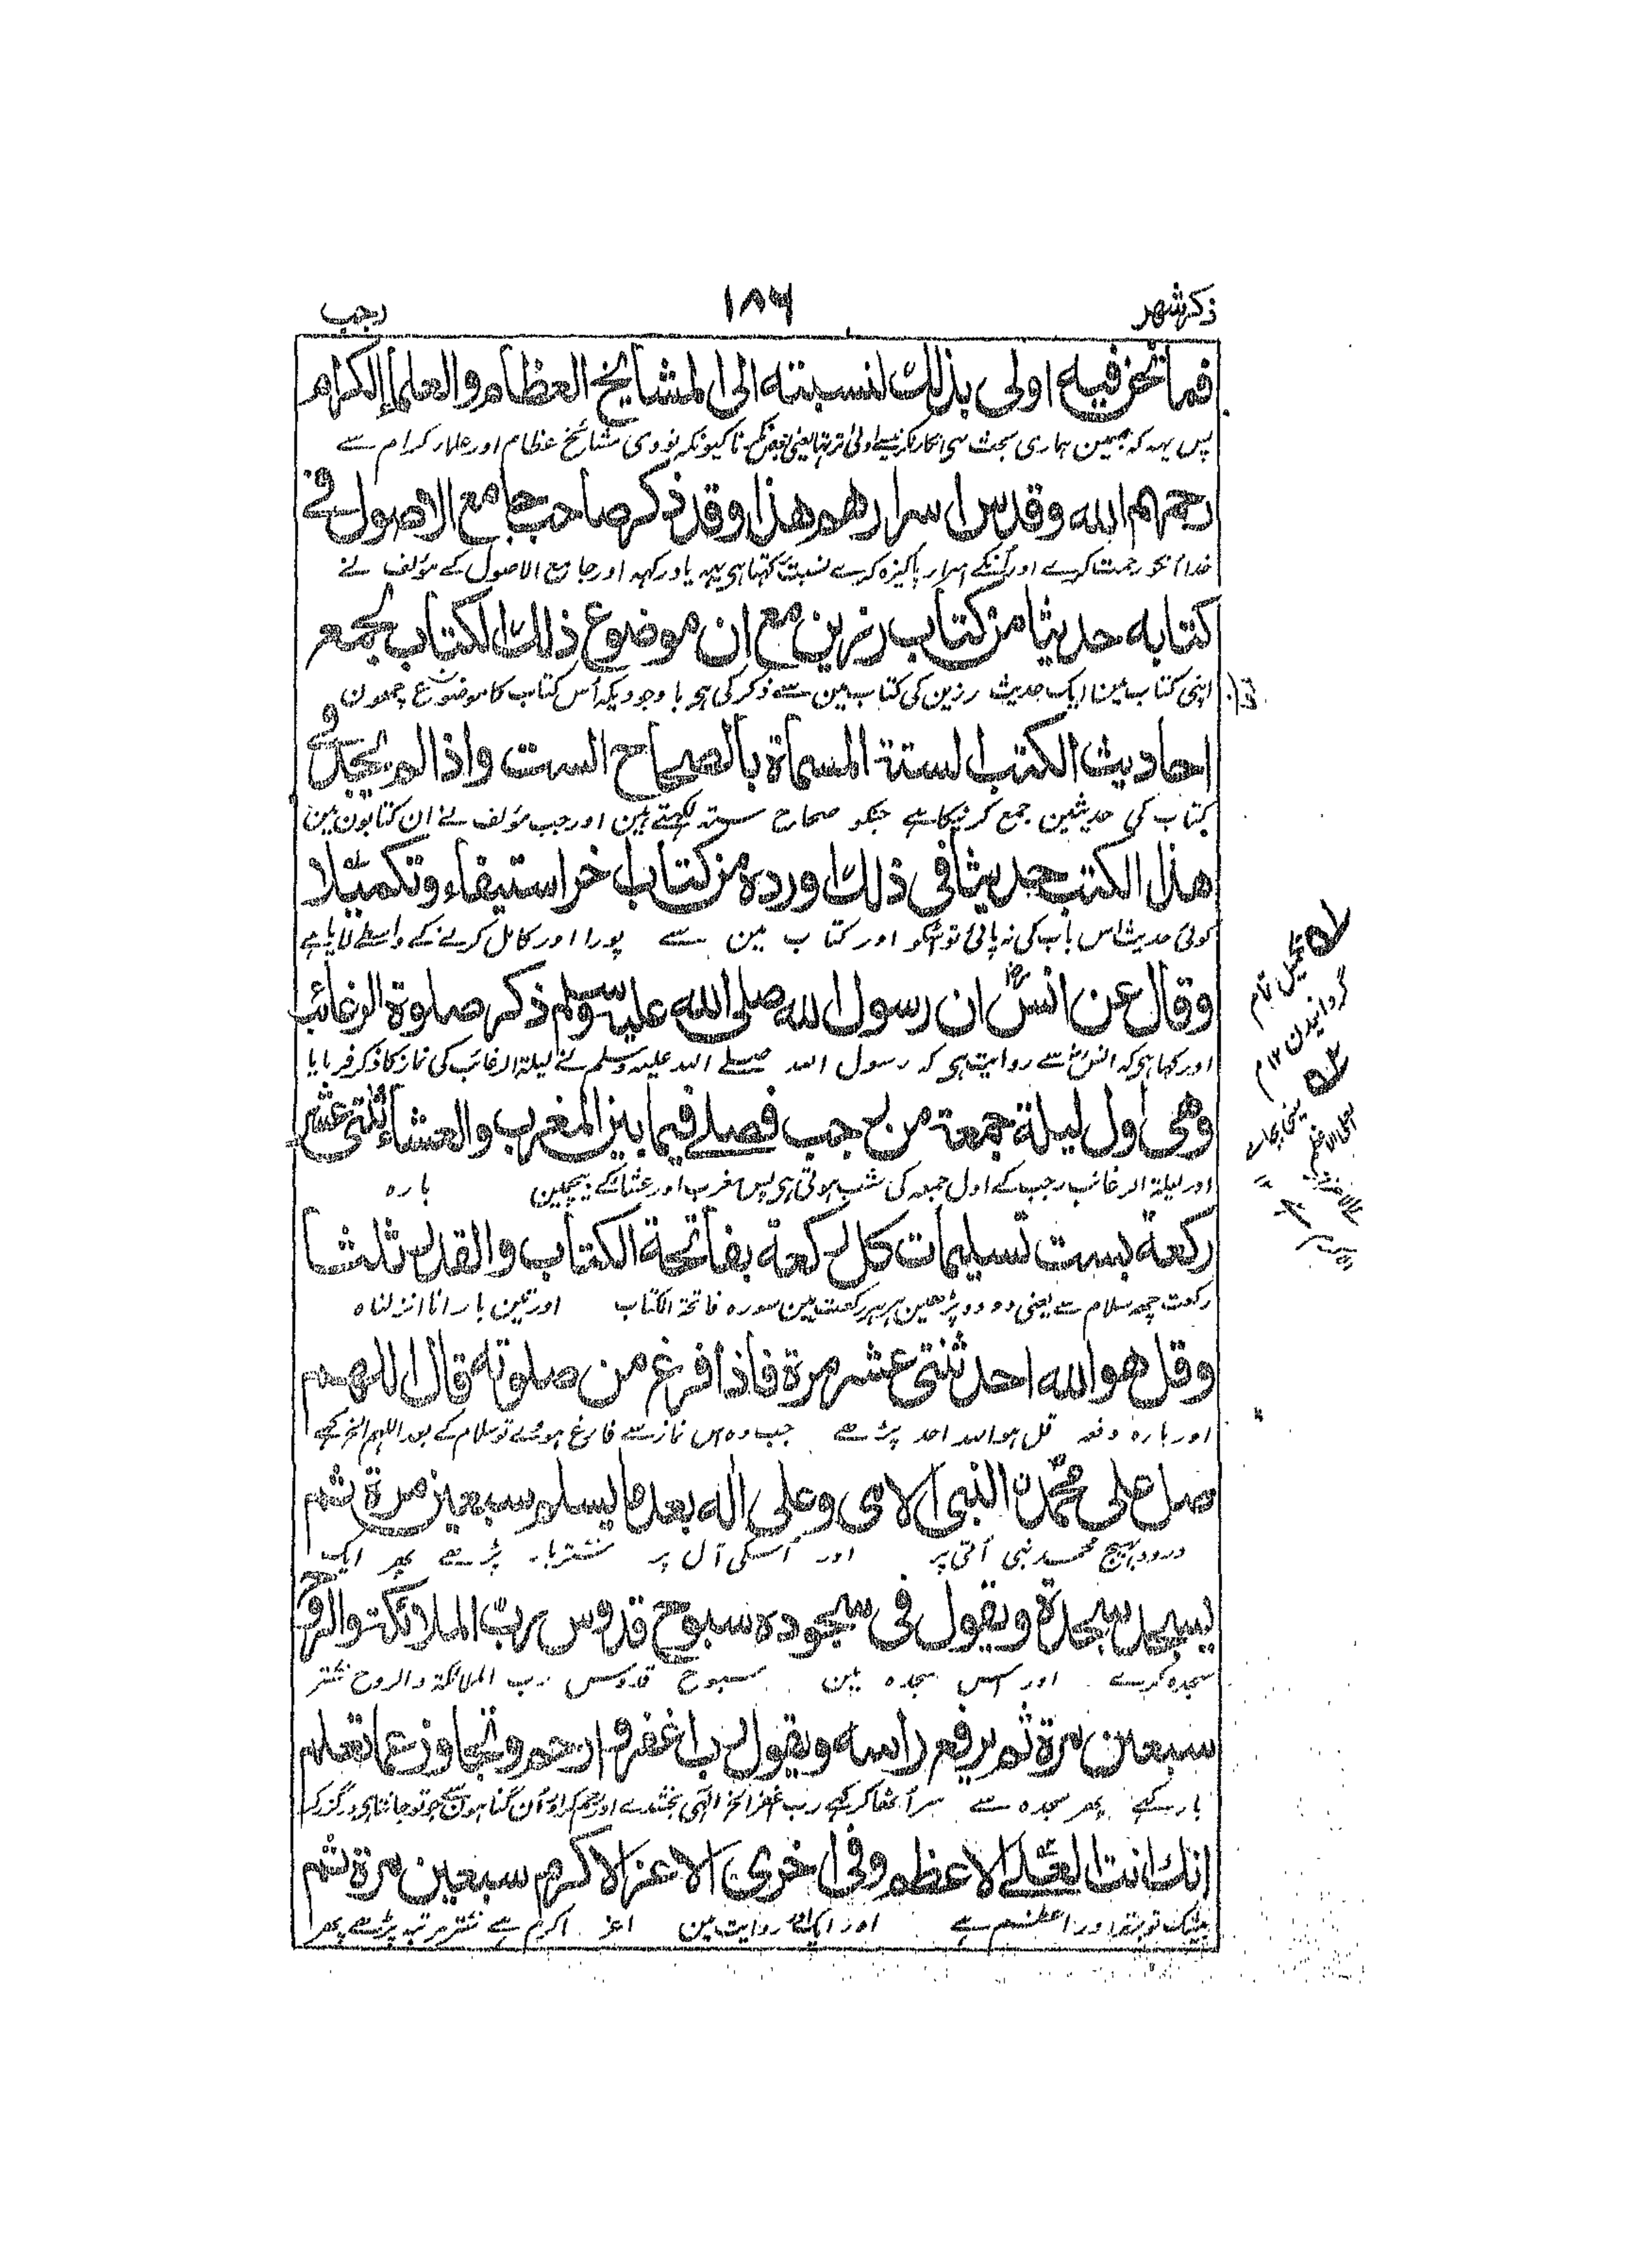 ذكر شهر ١٨٦ رجب
فما نحن فيه اولى بذلك لنسبته الى المشايخ العظام والعلماء الكرام
پس یہہ کہ جسمین ہماری بحث ہی کیونکہ نووی مشائخ عظام اور علمار کرام سے
رحمهم الله وقدس اسرارهم هذا وقد ذكر صاحب جامع الاصول فى
خدا انکو رحمت کرے اور اُنکے اسرار پاکیزہ کرے نسبت رکھتا ہی یہہ یاد رکہہ اور جامع الاصول کے مؤلف نے
كتابه حديثا من كتاب رزين مع ان موضوع ذلك الكتاب لجمع
اپنی کتاب مین ایک حدیث رزین کی کتاب مین سے ذکر کی ہی با وجودیکہ اُس کتاب کا موضوع چھون
احاديث الكتب الستة المسماة بالصحاح الست واذا لم يجد فى
کتاب کی حدیثین جمع کرنیکا ہے جنکو صحاح ستہ کہتے ہین اور جب مؤلف نے ان کتابون مین
هذا الكتب حديثا فى ذلك اورده من كتاب اخر استيفاء وتكميلا
کوئی حدیث اس باب کی نہ پائی تو اسکو اور کتاب مین سے پورا اور کامل کرنے کے واسطے لایا ہے
وقال عن انسؓ ان رسول الله صلى الله عليه وسلم ذكر صلوة الرغائب
اور کہا ہی کہ انسؓ سے روایت ہی کہ رسول اللہ صلے اللہ علیہ وسلم نے لیلۃ الرغائب کی نماز کا ذکر فرمایا
وهى اول ليلة جمعة من رجب فصلے فيما بين المغرب والعشاء ثنتى عشر
اور لیلۃ الرغائب رجب کے اول جمعہ کی شب ہوتی ہی پس مغرب اور عشا کے بیچمین بارہ
ركعة بست تسليمات كل ركعة بفاتحة الكتاب والقدر ثلثا
رکعت چھہ سلام سے یعنی دو دو پڑھین ہر ہر رکعت مین سورہ فاتحۃ الکتاب اور تین بار انا انزلناہ
وقل هو الله احد ثنتى عشر مرة فاذا فرغ من صلوته قال اللهم
اور بارہ دفعہ قل ہو اللہ احد پڑھے جب وہ اس نماز سے فارغ ہووے تو سلام کے بعد اللہم الخ کہے
صل على محمدن النبى الامى وعلى اله بعد ما يسلم سبعين مرة ثم
درود بہیج محمد نبی اُمّی پر اور اُسکی آل پر ستّر بار پڑھے پھر ایک
يسجد سجدة ويقول فى سجوده سبوح قدوس رب الملائكة والروح
سجدہ کرے اور اس سجدہ مین سبوح قدوس رب الملائکۃ والروح ستّر
سبعين مرة ثم يرفع راسه ويقول رب اغفر وارحم وتجاوز عما تعلم
بار کہے پھر سجدہ سے سر اُٹھا کر کہے رب اغفر الخ الٰہی بخشدے اور رحم کر اور اُن گناہون سے جو تو جانتا ہی درگزر کر
انك انت العلى الاعظم وفى اخرى الاعز الاكرم سبعين مرة ثم
بیشک تو برتر اور اعظم ہے اور ایک روایت مین اعز اکرم ہے ستّر مرتبہ پڑھے پھر
تکمیل تمام
گردانیدن ١٢ م
یعنی بجائے